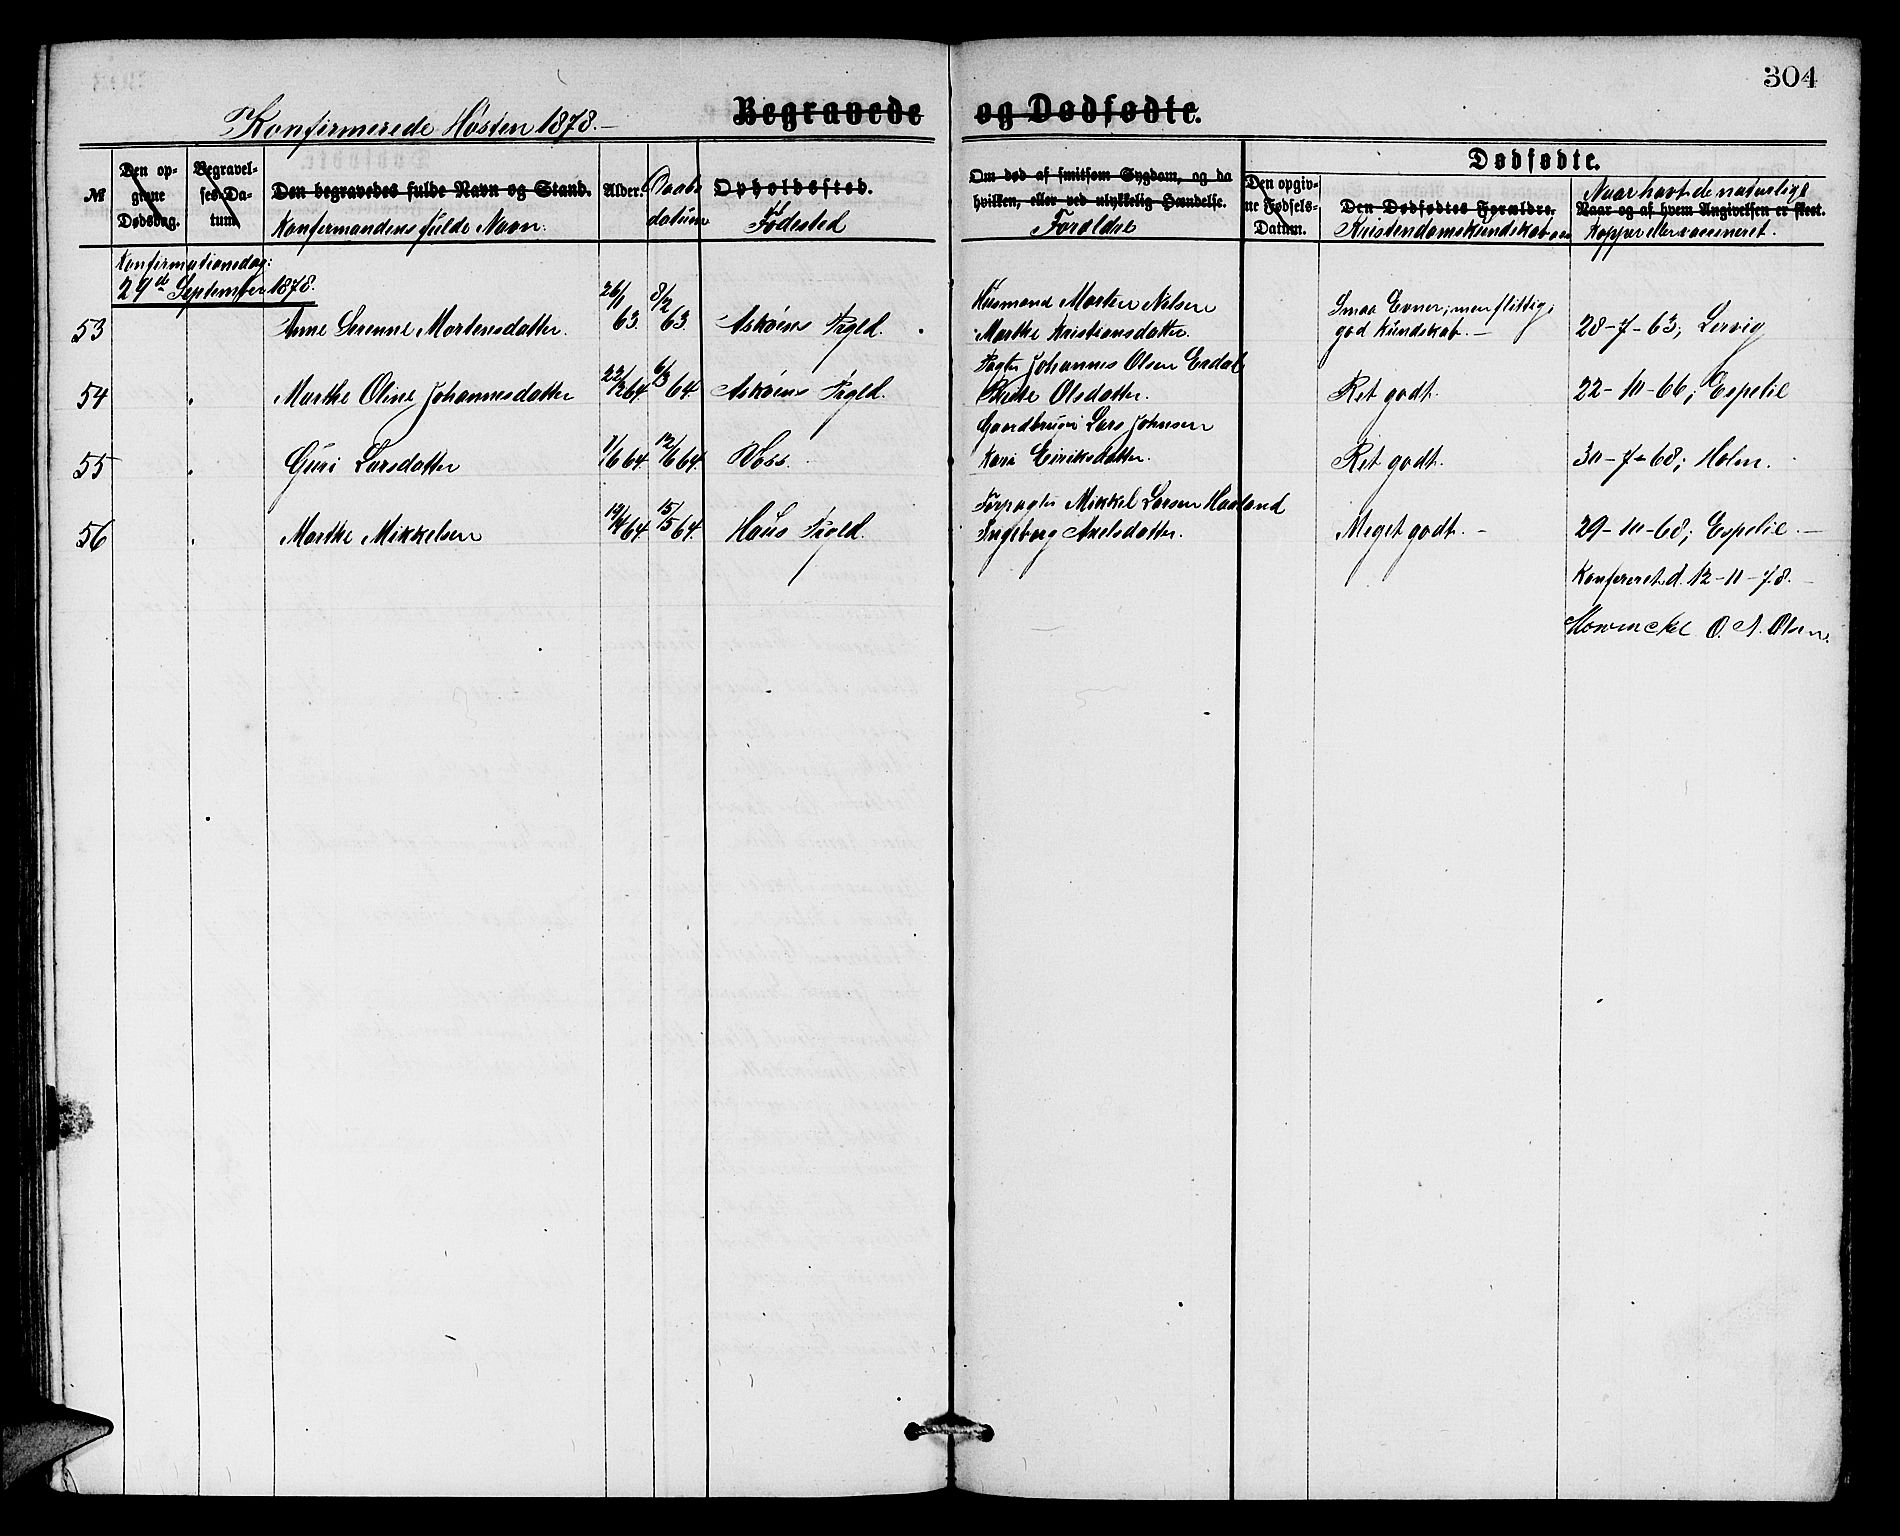 304
Konfirmerede Høsten 1878.
Begravede og Dødfødte.
Dødfødte.
№
Den opgivne Dødsdag.
Begravelses-Datum.
Den begravedes fulde Navn og Stand.
Konfirmandens fulde Navn.
Alder.
Daabsdatum
Opholdssted.
Fødested
Om død af smitsom Sygdom, og da
hvilken, eller ved ulykkelig Hændelse.
Forældre
Den opgivne Fødsels-Datum.
Den Dødfødtes Forældre.
Kristendomskundskab
Naar havt de naturlige
Naar og af hvem Angivelsen er skeet.
Kopper eller vaccineret.
Konfirmationsdag:
29de September 1878.
53 Anne Serenne Mortensdatter. 26/1 63. 8/2 63. Askøens Prgld. Husmand Morten Nilsen
Marthe Kristiansdatter. Smaa Evner; men flittig;
god Kundskab. 28-7-63; Lervig
54 Marthe Oline Johannesdatter 22/2 64. 6/3 64. Askøens Prgld. Pagter Johannes Olsen Erdal
Olsdatter. Ret godt. 22-10-66; Espelie
55 Guri Larsdatter 1/6 64. 12/6 64. Voss. Gaardbruger Lars Johnsen
Kari Eiriksdatter. Ret godt. 30-7-68; Holm.
56 Marthe Mikkelsen 19/4 64. 15/5 64. Haus Prgld. Forpagter Mikkel Larsen Haaland
Ingeborg Axelsdatter. Meget godt. 29-10-68; Espelie.
Konfereret d. 12-11-78.
O. A. Olsen.